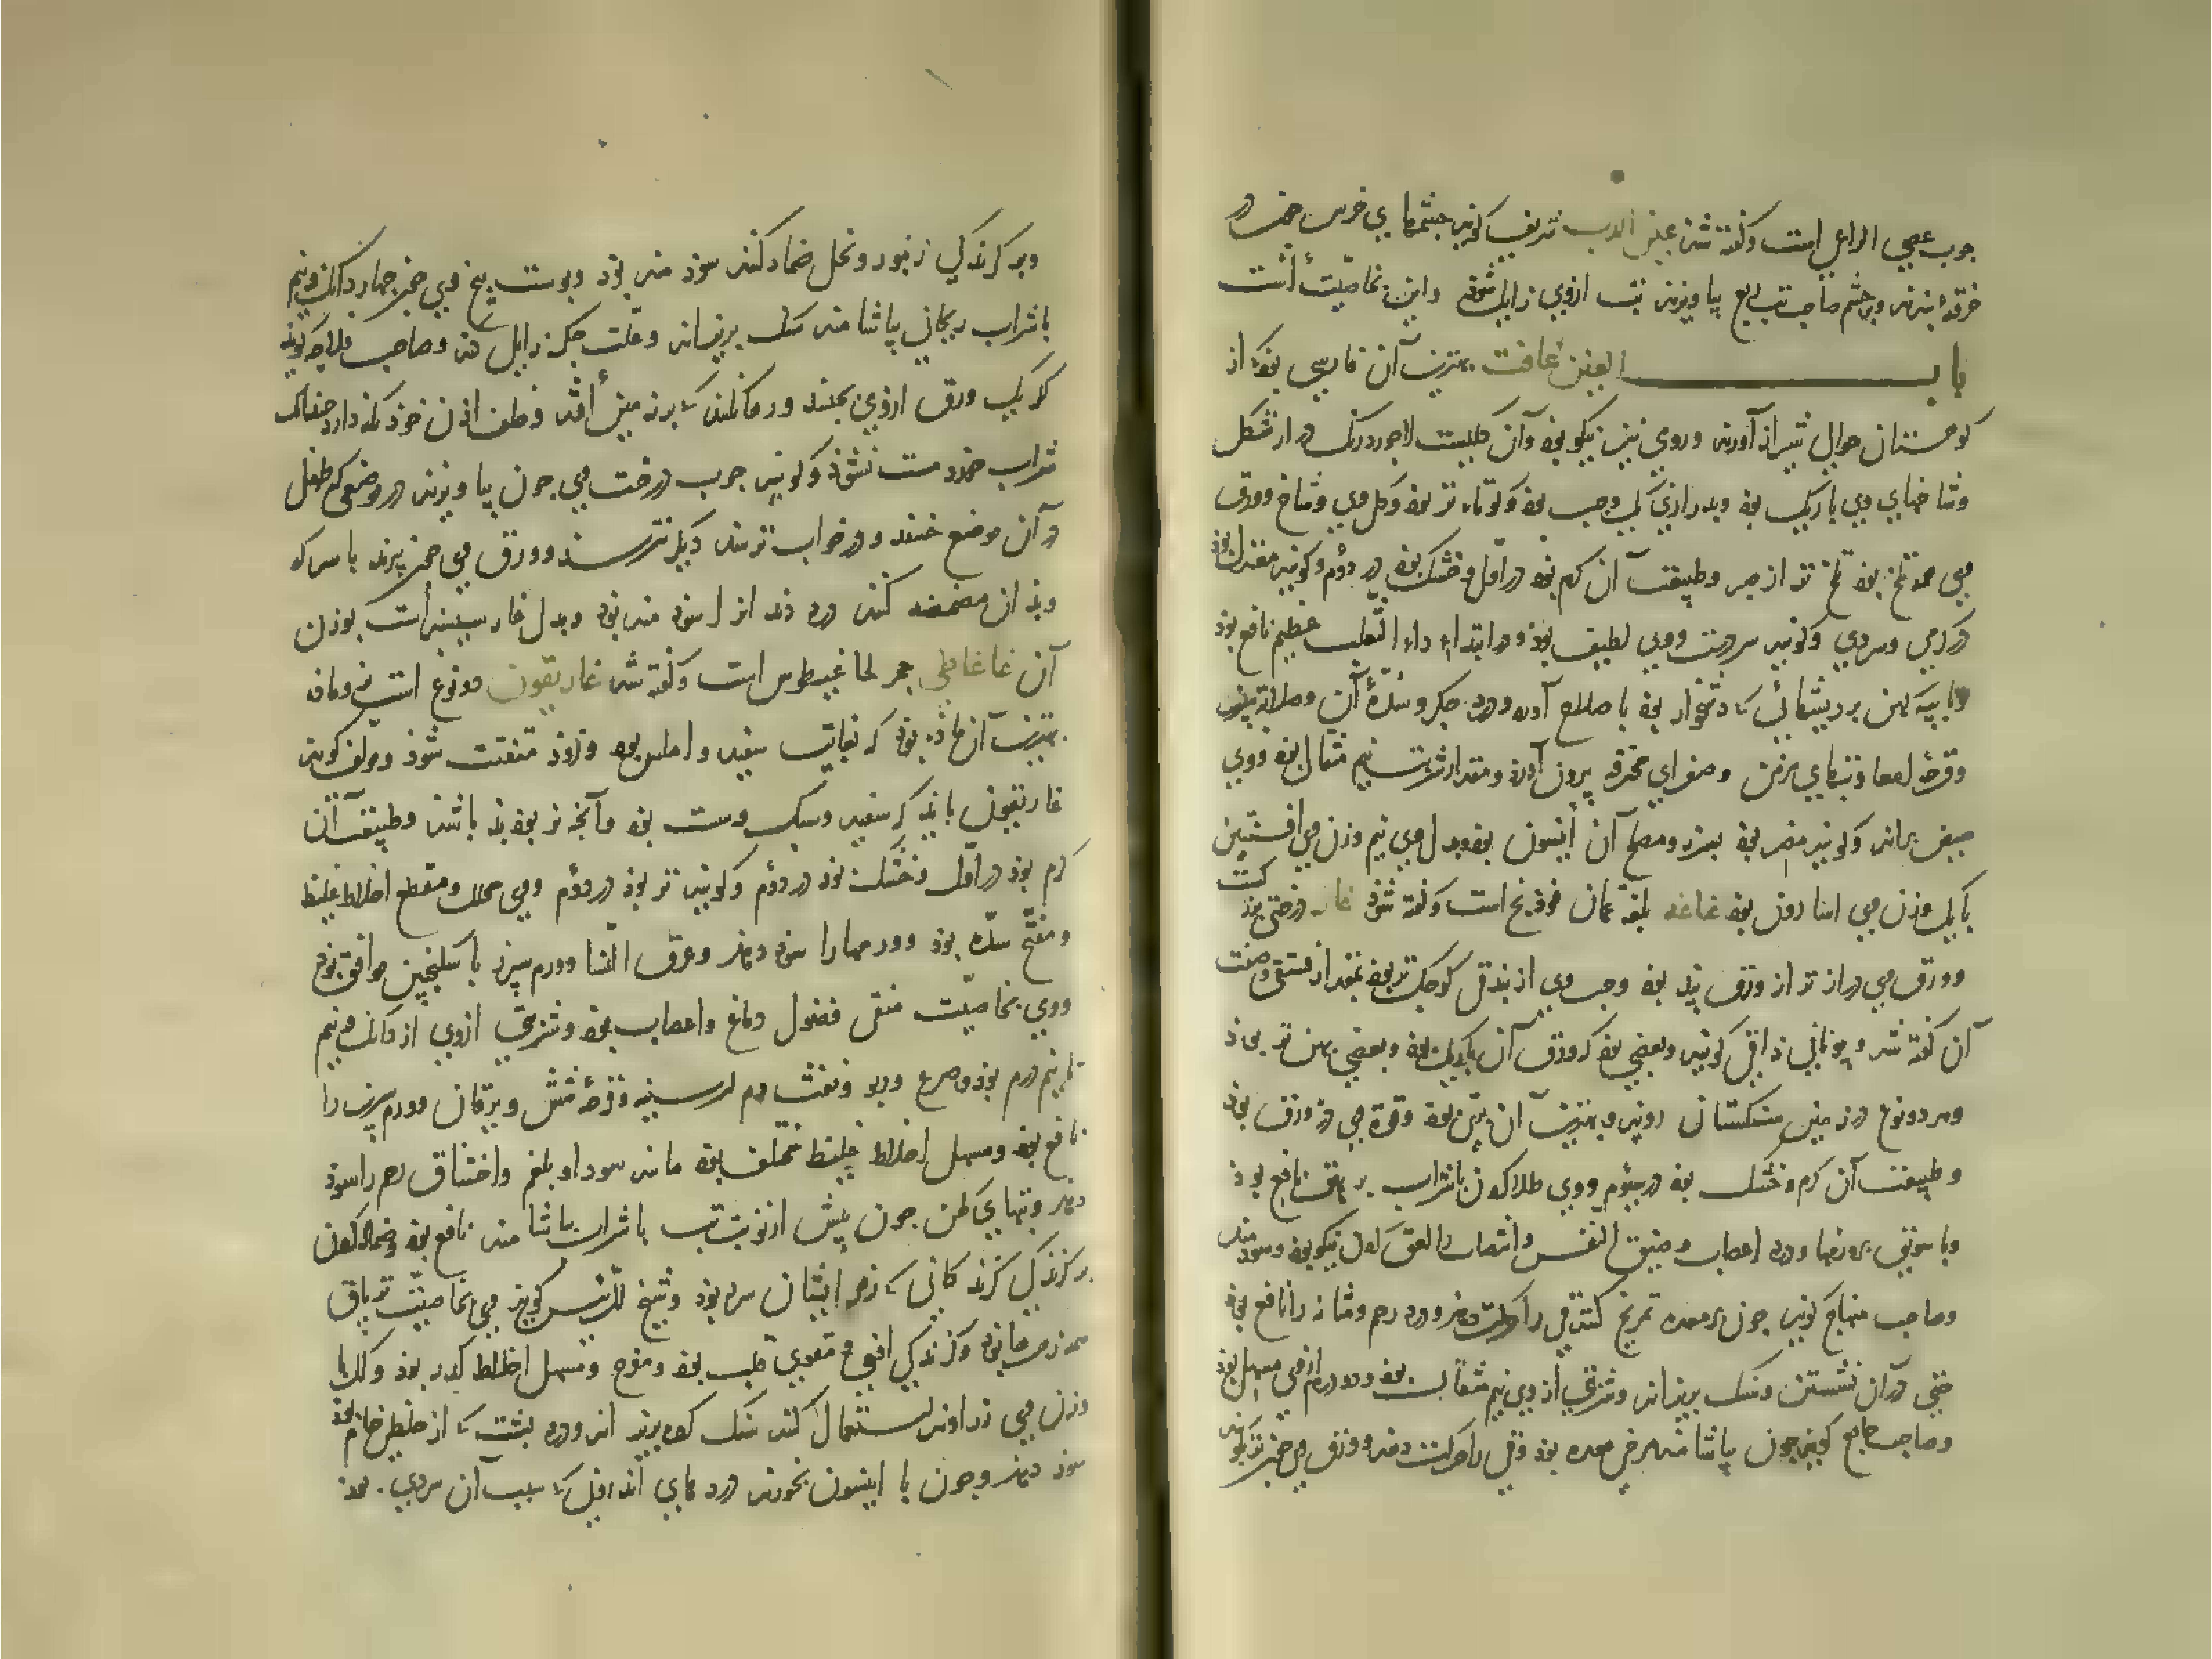 چوب عصی الراعی است و گفته شد عین الدب شریف گوید چشمهای خرس چون در
خرقه بندند و بر چشم صاحب تب ربع بیاویزند تب از وی زایل شود و این بخاصیت است
باب الغین غافت بهترین آن فارسی بود که از
کوهستان حوالی شیراز آورند و رومی نیز نیکو بود و آن گلیست لاجورد رنگ دراز شکل
و شاخهای وی باریک بود و بدرازی یک وجب بود و کوتاه تر بود و گل وی و شاخ و ورق
وی همه تلخ بود تلخ تر از صبر و طبیعت آن گرم بود در اول و خشک بود در دوم و گویند معتدل بود
در گرمی و سردی و گویند سردست و وی لطیف بود و در ابتداء داء الثعلب عظیم نافع بود
و با پیه کهن بر ریشهائی که دشخوار بود با صلاح آورد و درد جگر و سده آن و صلابت سپرز
و قرحه امعا و تبهای مزمن و صفرای محترقه بیرون آورد و مقدار شربت نیم مثقال بود و وی
حیض براند و گویند مضر بود بسپرز و مصلح آن انیسون بود و بدل وی نیم وزن وی افسنتین
با یک وزن وی اسارون بود غاغه بلغة عمان فوذنج است و گفته شود غار درختی بزرگست
و ورق وی دراز تر از ورق بید بود و حب وی از بندق کوچک تر بود بمقدار فستق و صفت
آن گفته شد و بیونانی ذافنی گویند و بعضی بود که ورق آن باریک بود و بعضی پهن تر بود
و هر دو نوع در زمین سنگستان رویند و بهترین آن بری بود و قوة وی در ورق بود
و طبیعت آن گرم و خشک بود در سیوم و وی طلا کردن با شراب بر بهق نافع بود
و صاحب منهاج گوید چون بر معده تمریخ کنند قی را حرکت دهد و درد رحم و مثانه را نافع بود
چون در آن نشستن و سنگ بریزاند و شربتی از وی نیم مثقالست و دو درم از وی مسهل بود
و صاحب جامع گوید چون بیاشامند مرخی معده بود و قی را حرکت دهد و ورق وی چون تر بکوبند
و بر گزندگی زنبور و نحل ضماد کنند سود مند بود و پوست بیخ وی چون چهار دانک و نیم
با شراب ریحانی بیاشامند سنگ بریزاند و علت جگر زایل کند و صاحب فلاحه گوید
که یک ورق از وی بچینند و رها نکنند که بر زمین افتد و خلف اذن خود نگه دارد چندانک
شراب خورد مست نشود و گویند چوب درخت وی چون بیاویزند در موضعی که طفل
در آن موضع خسبد و در خواب ترسد دیگر نترسد و ورق وی چون بپزند با سرکه
و بدان مضمضه کنند درد دندانرا سود مند بود و بدل غار سپندانست بوزن
آن غاغاطی حجر لحا غیطوس است و گفته شد غاریقون دو نوع است نر و ماده
بهترین آن ماده بود که بغایت سپید و املس بود و زود متفتت شود و مولف گوید
غاریقون باید که سفید و سبک و سست بود و آنچه نر بود بد باشد و طبیعت آن
گرم بود در اول و خشک بود در دوم و گویند تر بود در دوم و وی محلل و مقطع اخلاط غلیظ
و مفتح سده بود و ورمها را سود دهد و عرق النسا و ورم سپرز با سکنجبین موافق بود
و وی بخاصیت منقی فضول دماغ و اعصاب بود و شربتی از وی از دانک و نیم
تا نیم درم بود و صرع و ربو و نفث دم از سینه و قرحه شش و یرقان و ورم سپرز را
نافع بود و مسهل اخلاط غلیظ مختلف بود مانند سودا و بلغم و اختناق رحم را سود
دهد و تبهای کهن چون پیش از نوبت تب با شراب بیاشامند نافع بود و ضماد کردن
بر گزندگی گزندگانی که زهر ایشان سرد بود و شیخ الرئیس گوید وی بخاصیت تریاق
همه زهرها بود و گزندگی افعی و مقوی قلب بود و مفرح و مسهل اخلاط کدر بود
وزن وی زراوند استعمال کنند سنگ گرده بریزاند و درد پشت که از خلط خام بود
سود دهد و چون با انیسون بخورند دردهای اندرونی که سبب آن سردی بود